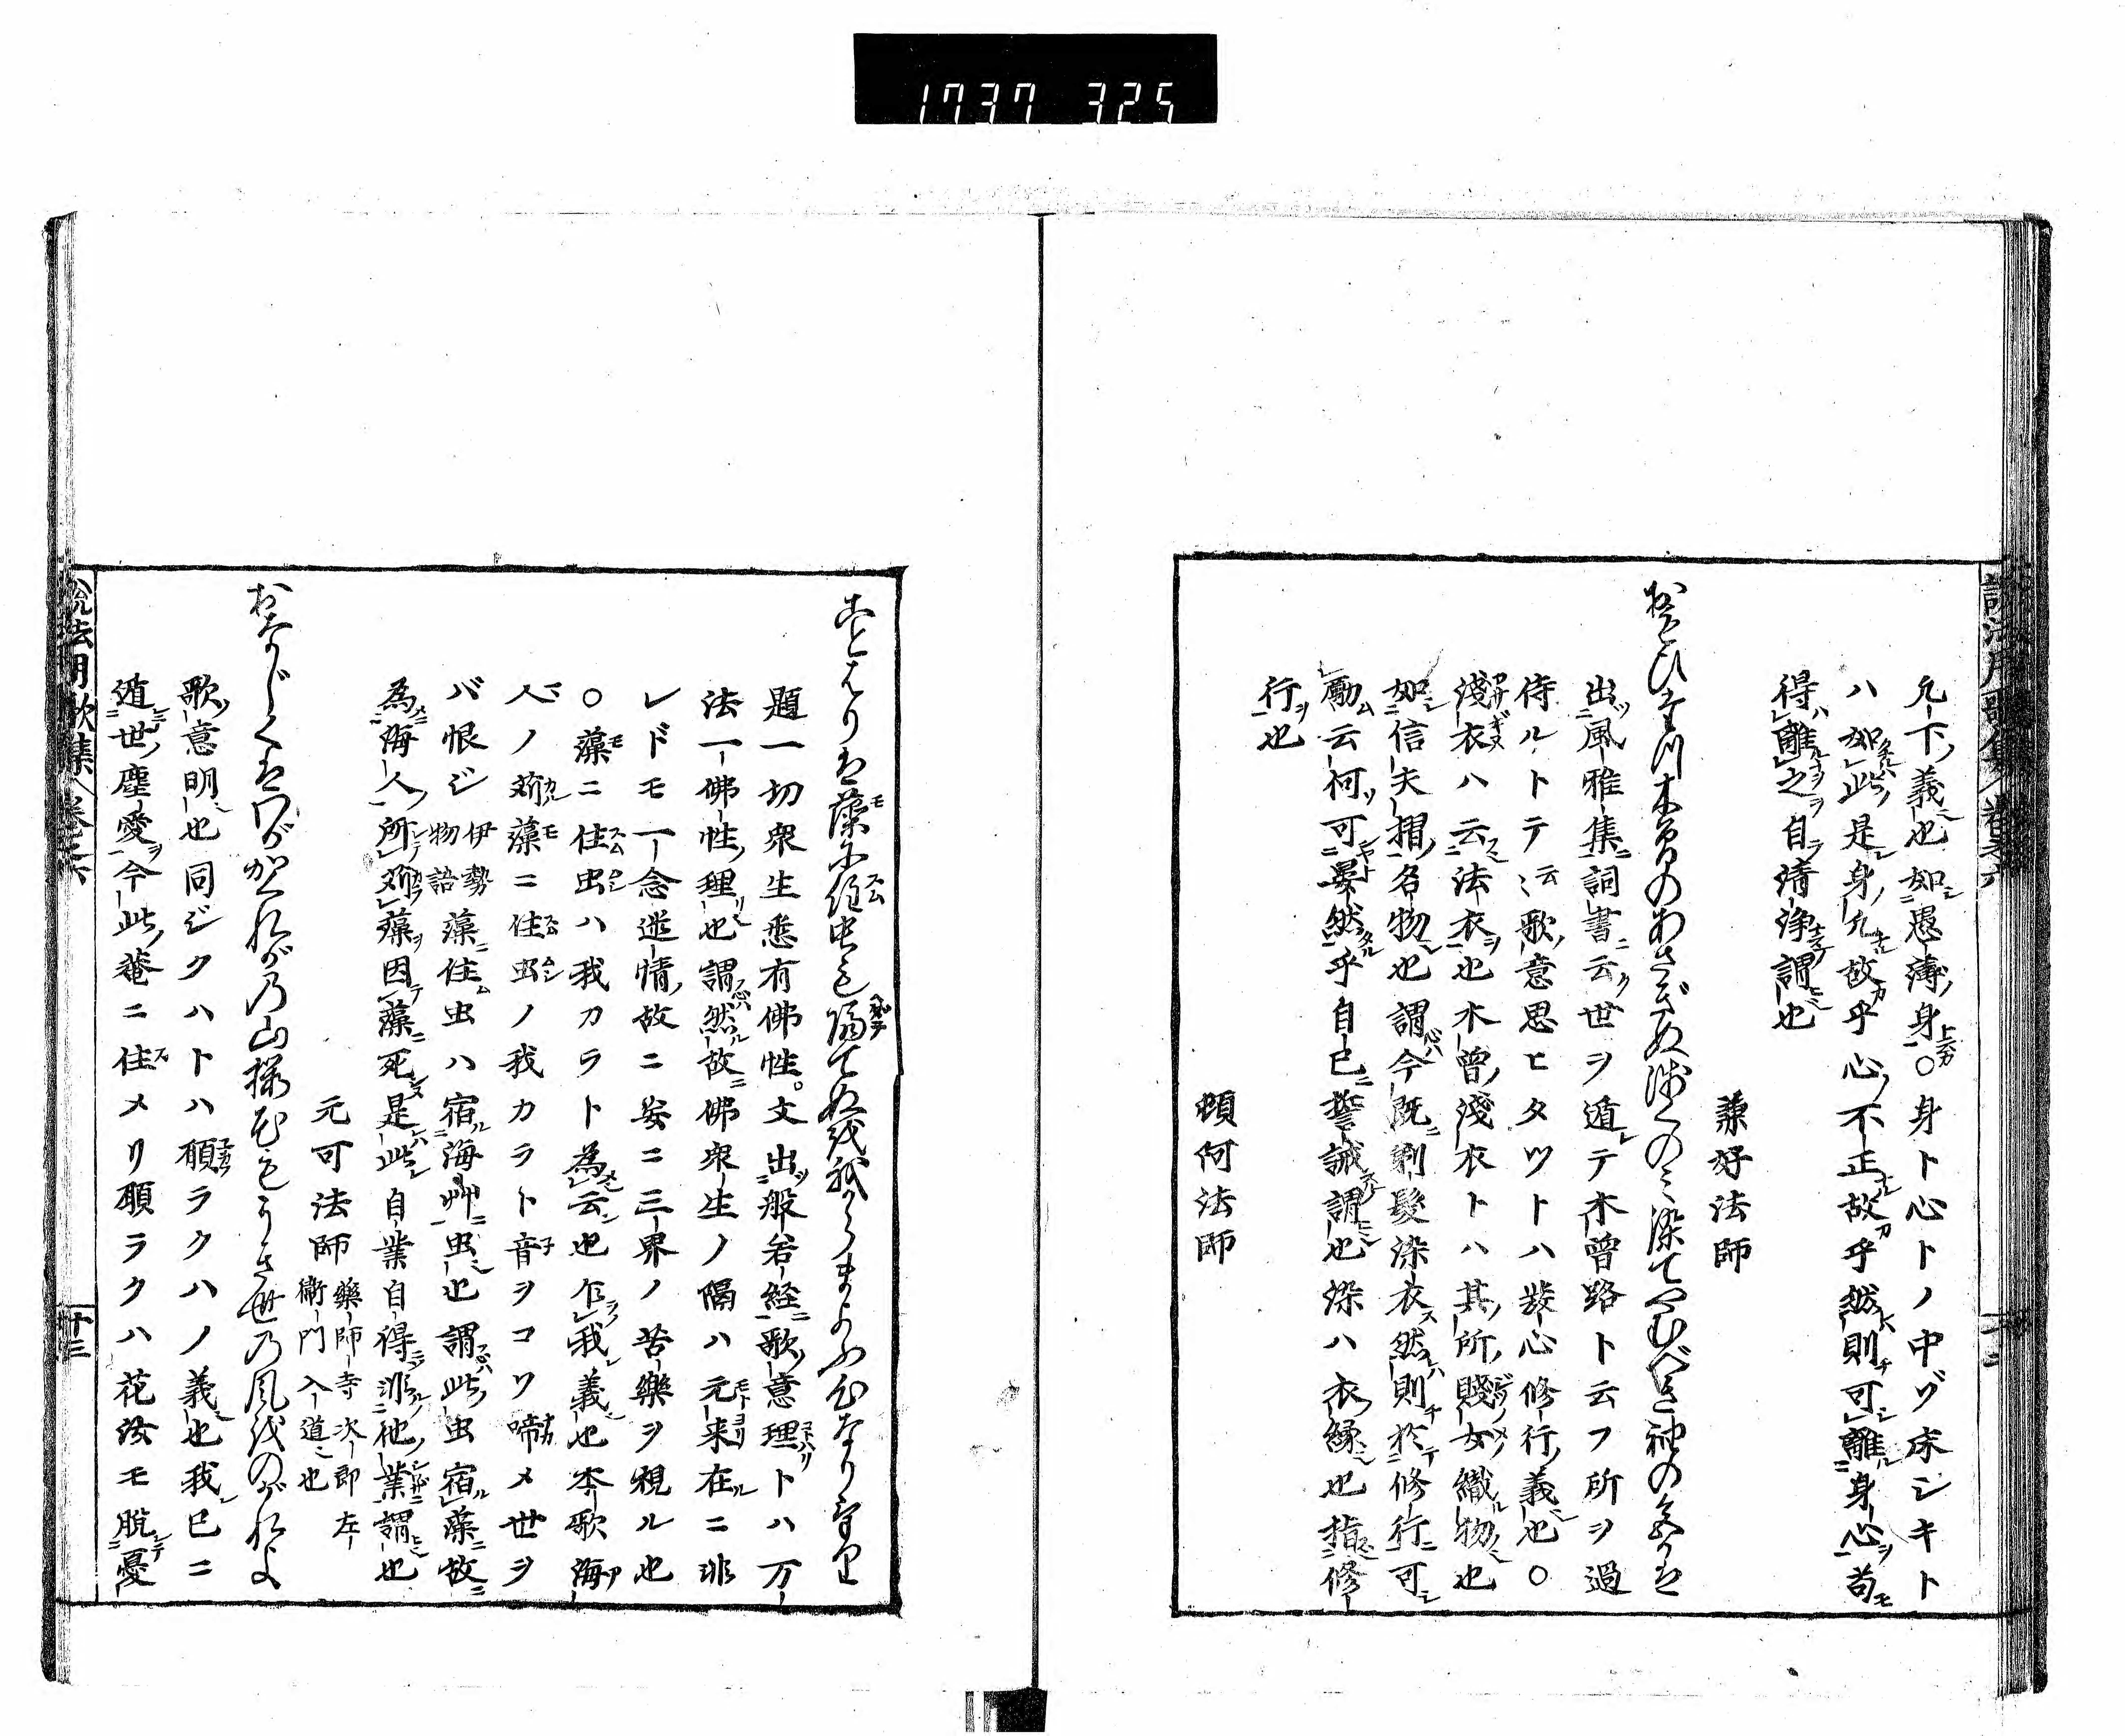 1737 325
凡下ノ義也如愚薄ノ身○身ト心トノ中ヅ床シキト
ハ如此ノ是身ノ凡故乎心ノ不正故乎然則可離身心苟モ
得離之自清浄謂也
兼好法師
おもひたつ木曽のあさぎぬ浅くのミ染てやむべき袖の色かは
出風雅集詞書云世ヲ遁テ木曽路ト云フ所ヲ過
侍ルトテ云歌ノ意思ヒタツトハ發心修行ノ義也○
淺衣ハ云法衣也木曽ノ淺衣トハ其ノ所ノ賤女織物也
如信夫摺ノ名物也謂今既剃髮染衣然則於修行可
勵云何可晏然乎自己誓誡謂也染ハ衣ノ縁也指修
行也
頓阿法師
ことはりは藻に住虫も隔てぬを我からまよふ心なりけり
題一切衆生悉有佛性。文出般若経歌ノ意理トハ万
法一佛性ノ理也謂然故佛衆生ノ隔ハ元来在ニ非
レドモ一念迷情ノ故ニ妄ニ三界ノ苦樂ヲ視ル也
○藻ニ住虫ハ我カラト為云也乍我義也本歌海
人ノ苅藻ニ住虫ノ我カラト音ヲコソ啼メ世ヲ
バ恨ジ伊勢物語藻住虫ハ宿海艸虫也謂此虫宿藻故
為海人ノ所苅藻因藻死是此自業自得非他ノ業謂也
元可法師藥師寺次郎左衞門入道也
おなじくはわがかくれがの山櫻花もうき世の風をのがれよ
歌ノ意明也同ジクハトハ願ラクハノ義也我已ニ
遁世ノ塵愛今此ノ菴ニ住メリ願ラクハ花汝モ脱憂
説法用歌集 巻之六
十三